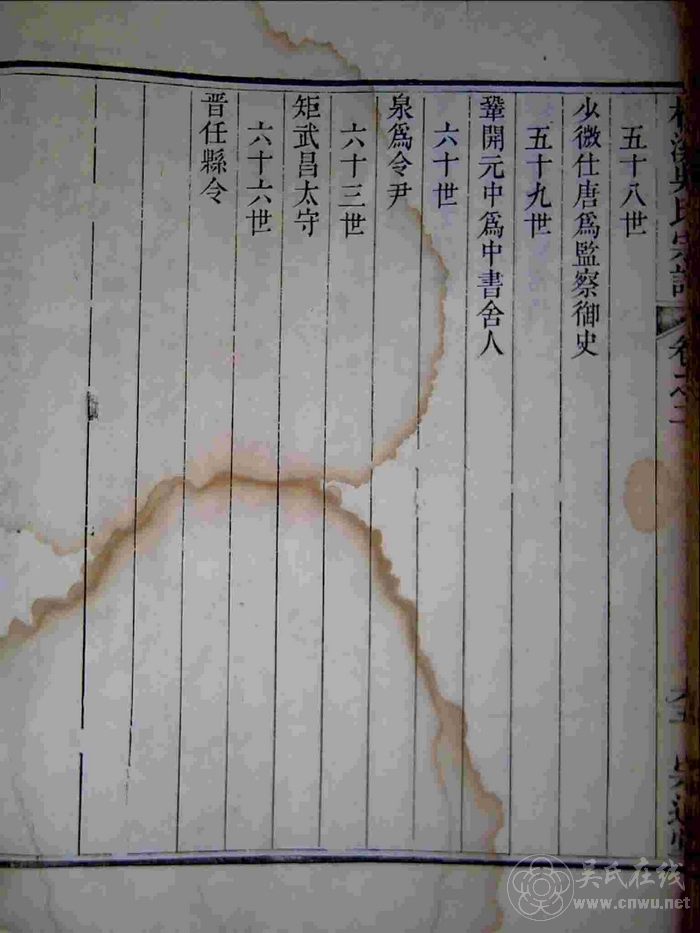 吳氏宗譜
卷之二
五十八世
少微仕唐爲監察御史
五十九世
鞏開元中爲中書舍人
六十世
泉爲令尹
六十三世
矩武昌太守
六十六世
晋任縣令
吴氏在线
www.cnwu.net